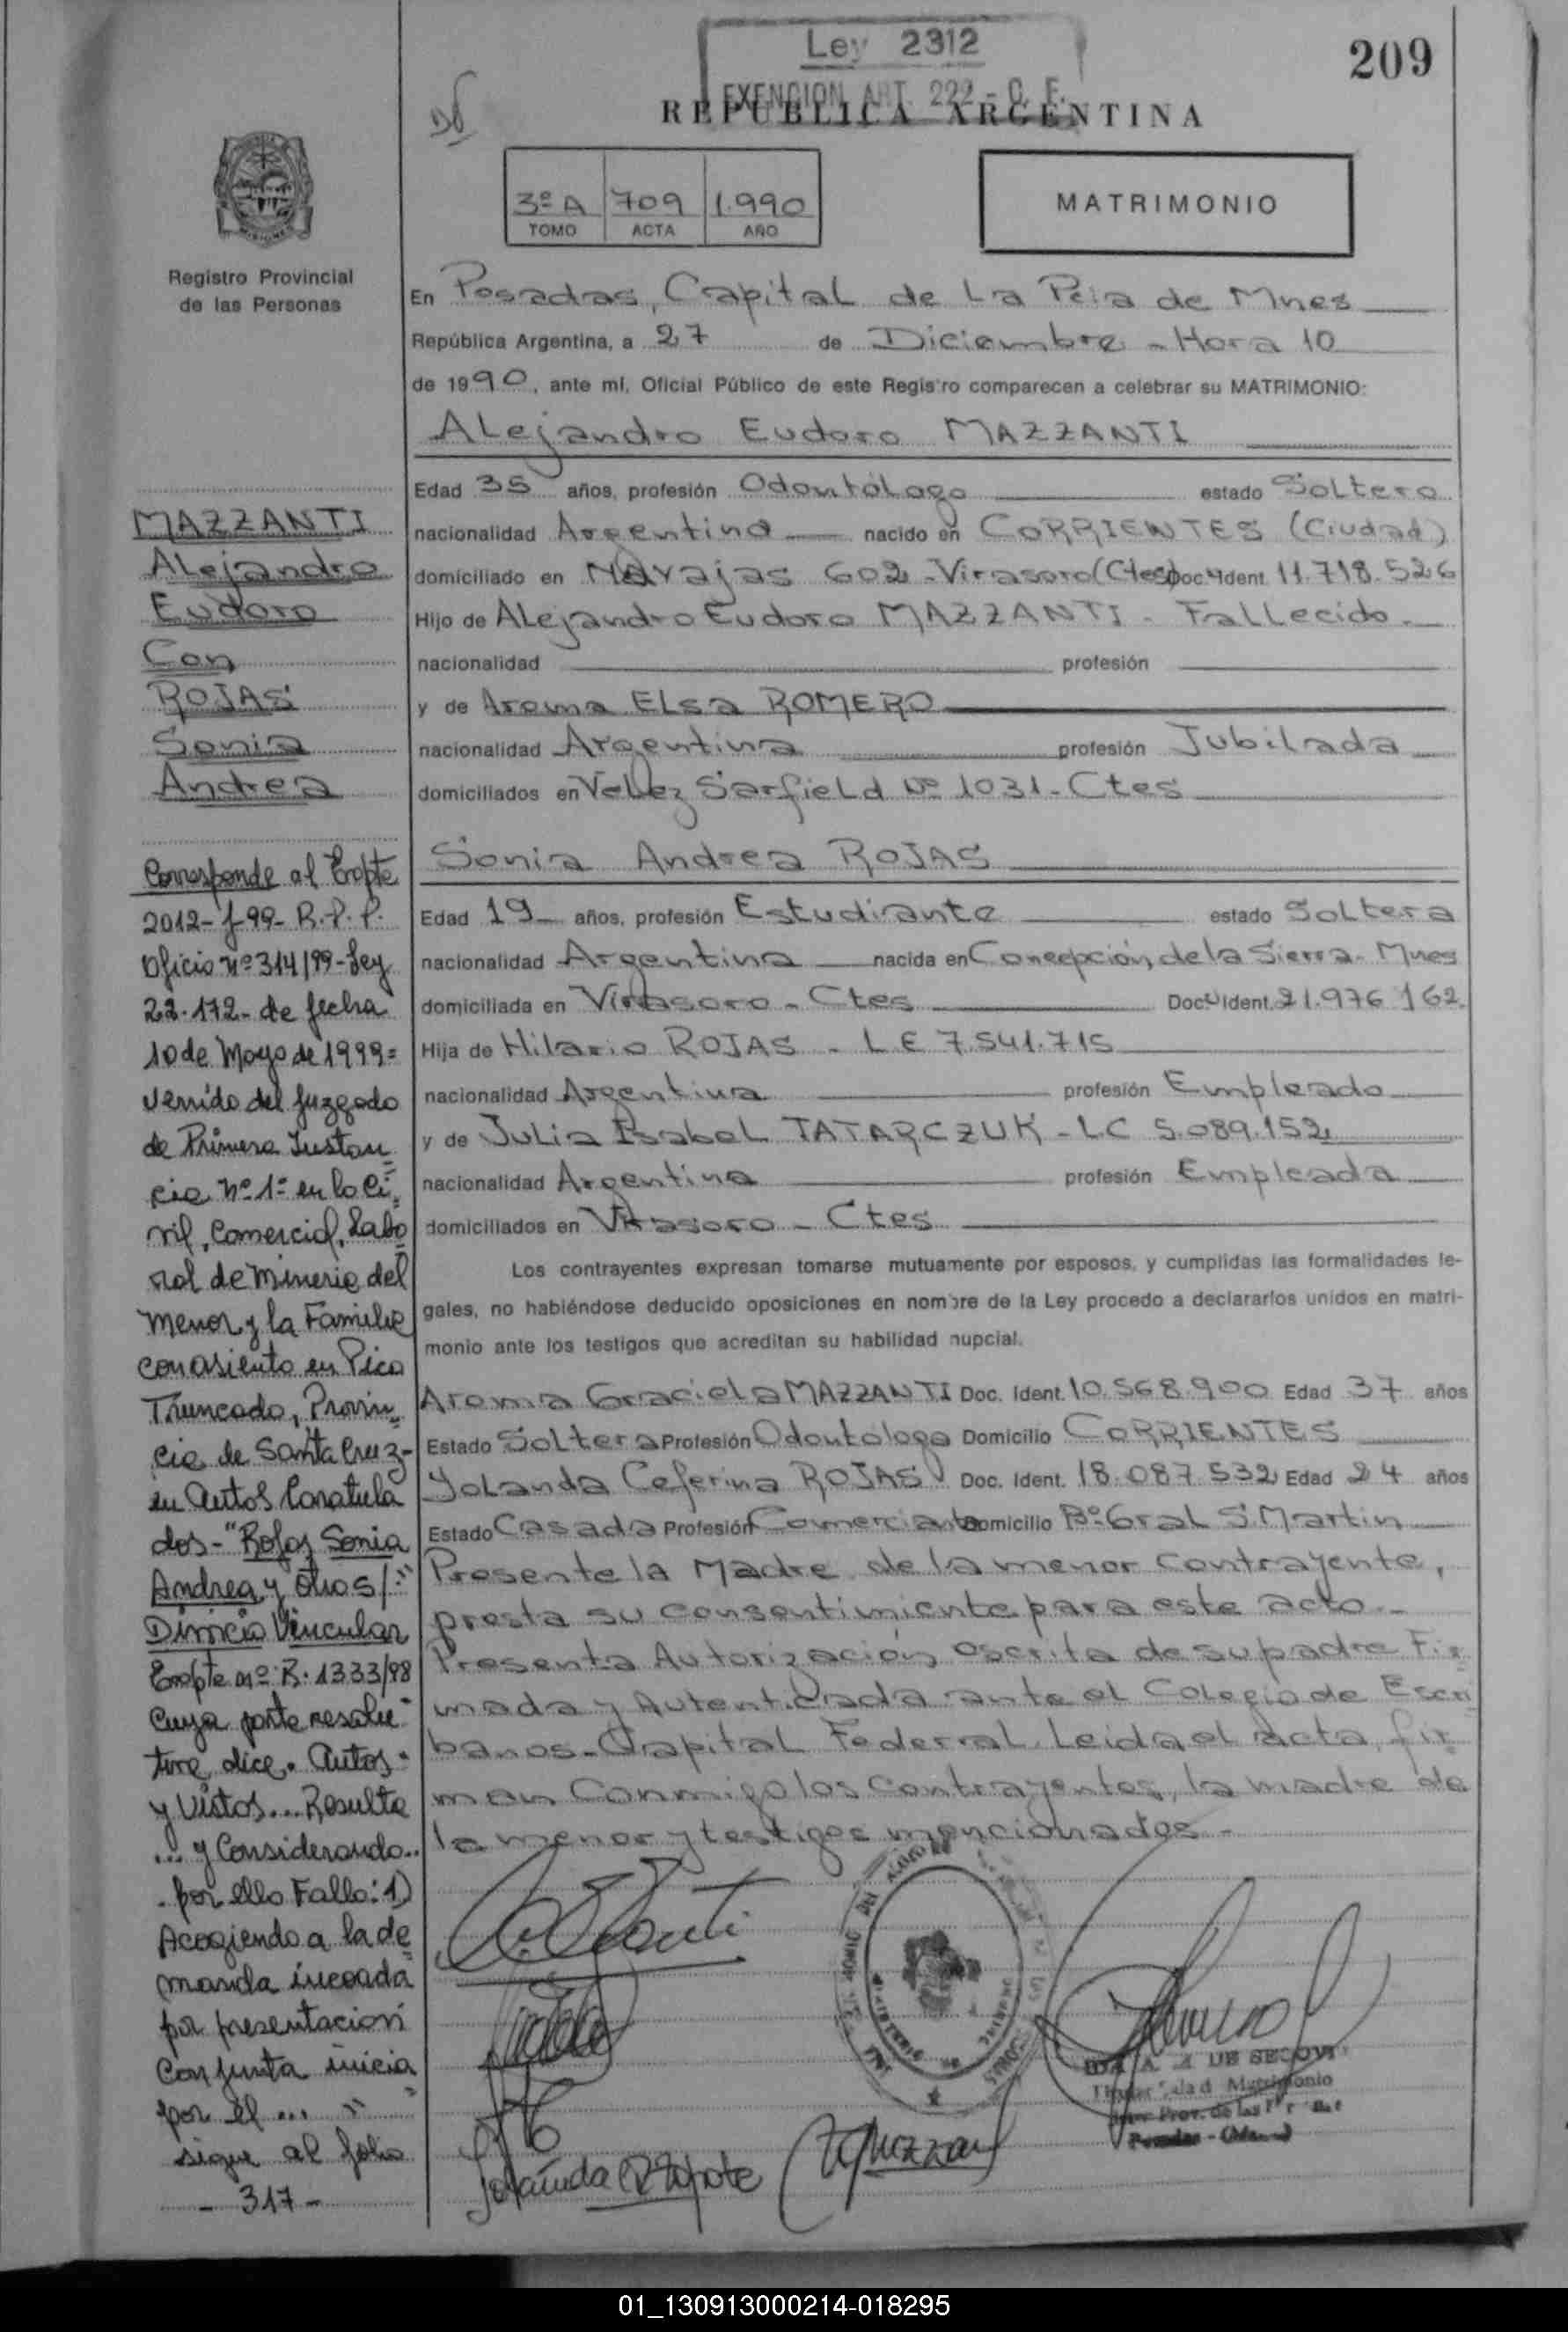 Ley 2312
EXENCION ART. 222 - C. F.
209
REPUBLICA ARGENTINA
3º A 709 1.990
TOMO ACTA AÑO
MATRIMONIO
MISIONES
Registro Provincial
de las Personas
En Posadas, Capital de La Pcia de Mnes
República Argentina, a 27 de Diciembre - Hora 10
de 1990, ante mí, Oficial Público de este Registro comparecen a celebrar su MATRIMONIO:
Alejandro Eudoro MAZZANTI
Edad 35 años, profesión Odontólogo estado Soltero
nacionalidad Argentina nacido en CORRIENTES (Ciudad)
domiciliado en Navajas 602 - Virasoro (Ctes) Doc. Ident. 11.718.526
Hijo de Alejandro Eudoro MAZZANTI - Fallecido.
nacionalidad profesión
y de Aroma Elsa ROMERO
nacionalidad Argentina profesión Jubilada
domiciliados en Vellez Sarfield Nº 1031 - Ctes
Sonia Andrea ROJAS
Edad 19 años, profesión Estudiante estado Soltera
nacionalidad Argentina nacida en Concepción de la Sierra - Mnes
domiciliada en Virasoro - Ctes Doc. Ident. 21.976.162.
Hija de Hilario ROJAS - LE 7.541.715
nacionalidad Argentina profesión Empleado
y de Julia Isabel TATARCZUK - LC 5.089.152
nacionalidad Argentina profesión Empleada
domiciliados en Virasoro - Ctes
Los contrayentes expresan tomarse mutuamente por esposos, y cumplidas las formalidades le-
gales, no habiéndose deducido oposiciones en nombre de la Ley procedo a declararlos unidos en matri-
monio ante los testigos que acreditan su habilidad nupcial.
Aroma Graciela MAZZANTI Doc. Ident. 10.568.900 Edad 37 años
Estado Soltera Profesión Odontologa Domicilio CORRIENTES
Yolanda Ceferina ROJAS Doc. Ident. 18.087.532 Edad 24 años
Estado Casada Profesión Comerciante Domicilio Bº Gral S. Martin
Presente la Madre de la menor contrayente,
presta su consentimiento para este acto.-
Presenta Autorización escrita de su padre Fir
mada y Autenticada ante el Colegio de Escri
banos - Capital Federral. Leida el acta, fir
man conmigo los contrayentes, la madre de
la menor y testigos mencionados -
MAZZANTI
Alejandro
Eudoro
Con
ROJAS
Sonia
Andrea
Corresponde al Expte
2012-J-99- R.P.P.
Oficio Nº 314/99-Ley
22.172- de fecha
10 de Mayo de 1999=
venido del Juzgado
de Primera Instan
cia Nº 1= en lo Ci
vil, Comercial, Labo
ral de Mineria del
Menor y la Familia
con asiento en Pico
Truncado, Provin
cia de Santa Cruz-
en Autos Caratula
dos- "Rojas Sonia
Andrea y Otros/:"
Divorcio Vincular
Expte nº R. 1333/98
Cuya parte resolu
tiva dice. Autos.
y Vistos... Resulta
... y Considerando..
. por ello Fallo: 1)
Acogiendo a la de
manda incoada
por presentación
Conjunta inicia
por el ... "
sigue al folio
- 317 -
Titular Matrimonio
Prov. de las
Posadas
01_130913000214-018295